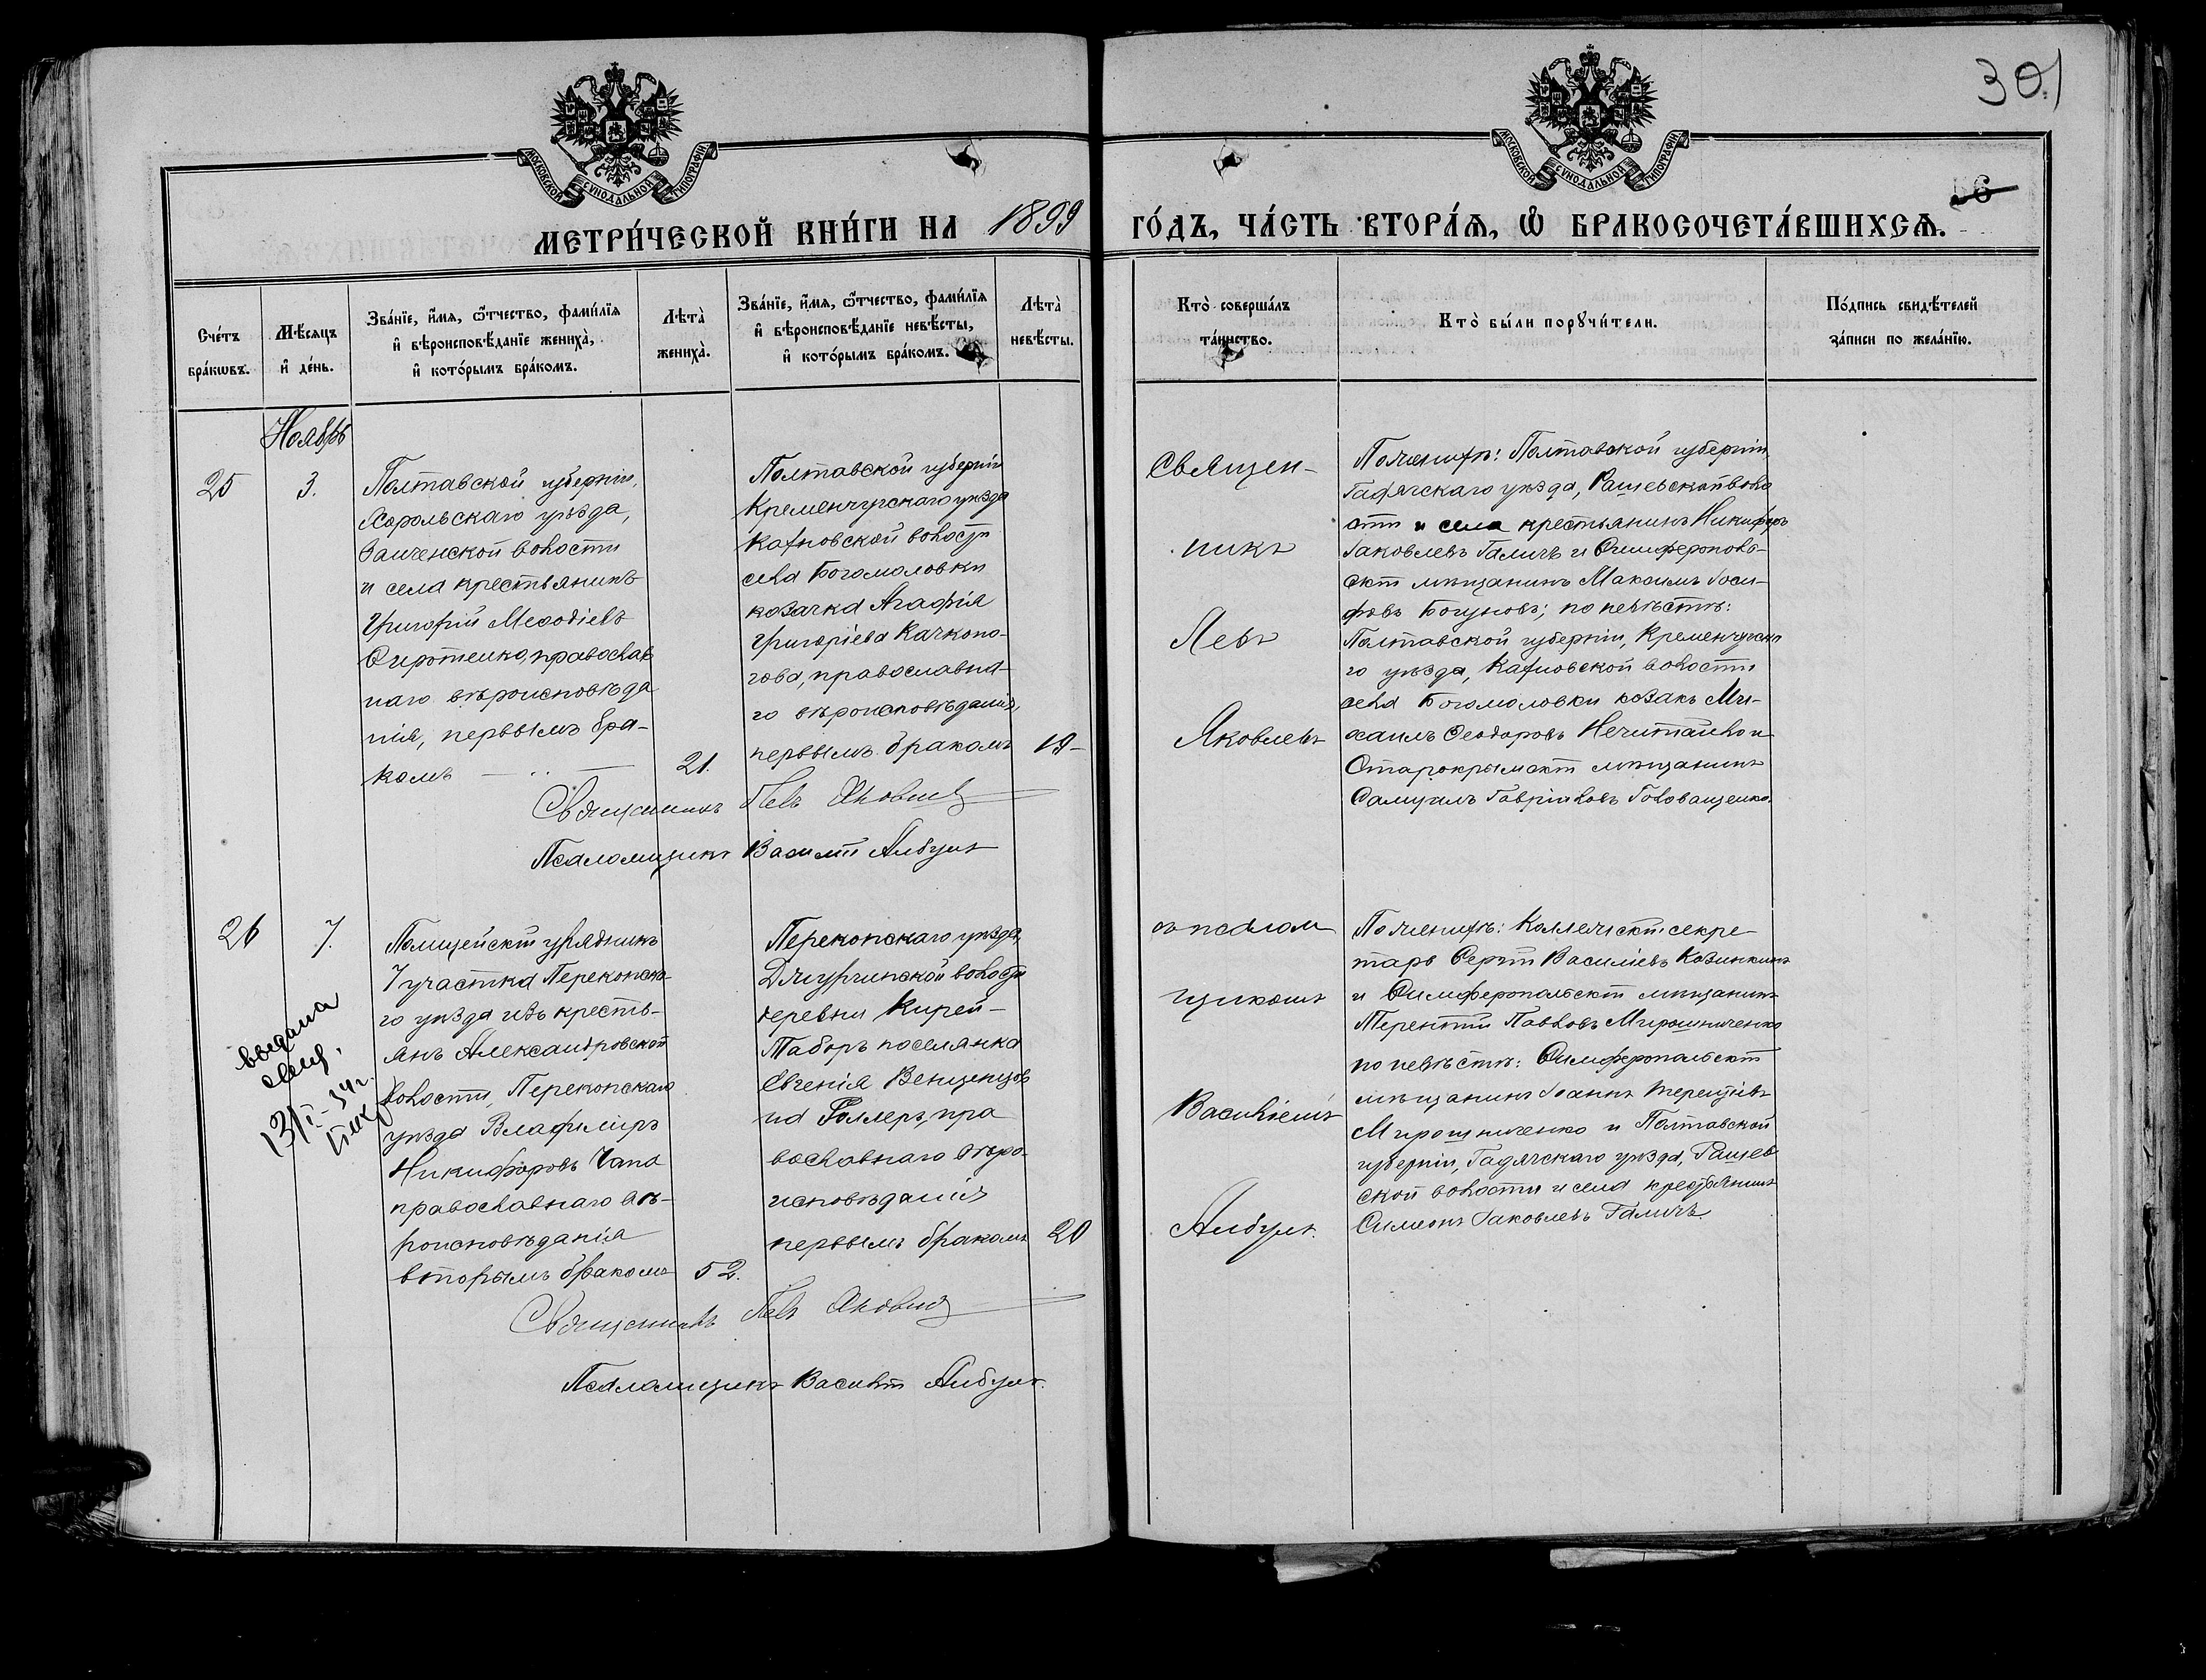 301
МОСКОВСКОЙ СѴНОДАЛЬНОЙ ТИПОГРАФИИ
МОСКОВСКОЙ СѴНОДАЛЬНОЙ ТИПОГРАФИИ
56
МЕТРИ́ЧЕСКОЙ КНИ́ГИ НА 1899
ГО́ДЪ, ЧА́СТЬ ВТОРА́Ѧ, Ѡ҆ БРАКОСОЧЕТА́ВШИХСѦ.
Сче́тъ
бра́кѡвъ.
Мѣ́сяцъ
и҆ де́нь.
Зва́нїе, и҆́мѧ, ѻ҆́тчество, фами́лїѧ
и҆ вѣроисповѣ́данїе жениха̀,
и҆ кото́рымъ бра́комъ.
Лѣта̀
жениха̀.
Зва́нїе, и҆́мѧ, ѻ҆́тчество, фами́лїѧ
и҆ вѣроисповѣ́данїе невѣ́сты,
и҆ кото́рымъ бра́комъ.
Лѣта̀
невѣ́сты.
Кто̀ соверша́лъ
та́инство.
Кто̀ бы́ли порꙋчи́тели.
По́дпись свидѣ́телей
за́писи по жела́нїю.
Ноябрь
25
3.
Полтавской губерніи,
Хорольскаго уѣзда,
волости
и села крестьянинъ
Григорій Меѳодіевъ
Сиротенко, православ
наго вѣроисповѣда
нія, первымъ бра-
комъ
21.
Полтавской губерніи
Кременчугскаго уѣзда
волости
села Богомоловки
козачка Агафія
Григоріева Качконо-
гова, православна
го вѣроисповѣданія,
первымъ бракомъ
19-
Священ-
никъ
Левъ
Яковлевъ
По женихѣ: Полтавской губерніи
Гадячскаго уѣзда, Рашевской воло
сти и села крестьянинъ Никифоръ
Іаковлевъ Галичъ и Симферополь-
скій мѣщанинъ Максимъ Іоси-
фовъ Богуновъ; по невѣстѣ:
Полтавской губерніи, Кременчугска
го уѣзда, волости
села Богомоловки козакъ Ми-
хаилъ Ѳеодоровъ Нечитайло и
Старокрымскій мѣщанинъ
Самуилъ Гавріиловъ Головащенко.
Священникъ Левъ Яковлевъ
Псаломщикъ Василій Албулъ
26
7.
выдана
13/I-34 г.
Полицейскій урядникъ
7 участка Перекопска-
го уѣзда изъ кресть-
янъ Александровской
волости, Перекопскаго
уѣзда Владиміръ
Никифоровъ Чапа
православнаго вѣ-
роисповѣданія
вторымъ бракомъ
52.
Перекопскаго уѣзда,
Джурчинской волости
деревни Кирей-
Таборъ поселянка
Евгенія Венценцов
на Роллеръ, пра
вославнаго вѣро
исповѣданія
первымъ бракомъ
20
съ псалом
щикомъ
Василіемъ
Албулъ.
По женихѣ: Коллежскій секре-
тарь Сергій Василіевъ Казинкинъ
и Симферопольскій мѣщанинъ
Терентій Павловъ Мирошниченко
по невѣстѣ: Симферопольскій
мѣщанинъ Іоаннъ Терентіевъ
Мирошниченко и Полтавской
губерніи, Гадячскаго уѣзда, Рашев
ской волости и села крестьянинъ
Симеонъ Іаковлевъ Галичъ.
Священникъ Левъ Яковлевъ
Псаломщикъ Василій Албулъ.